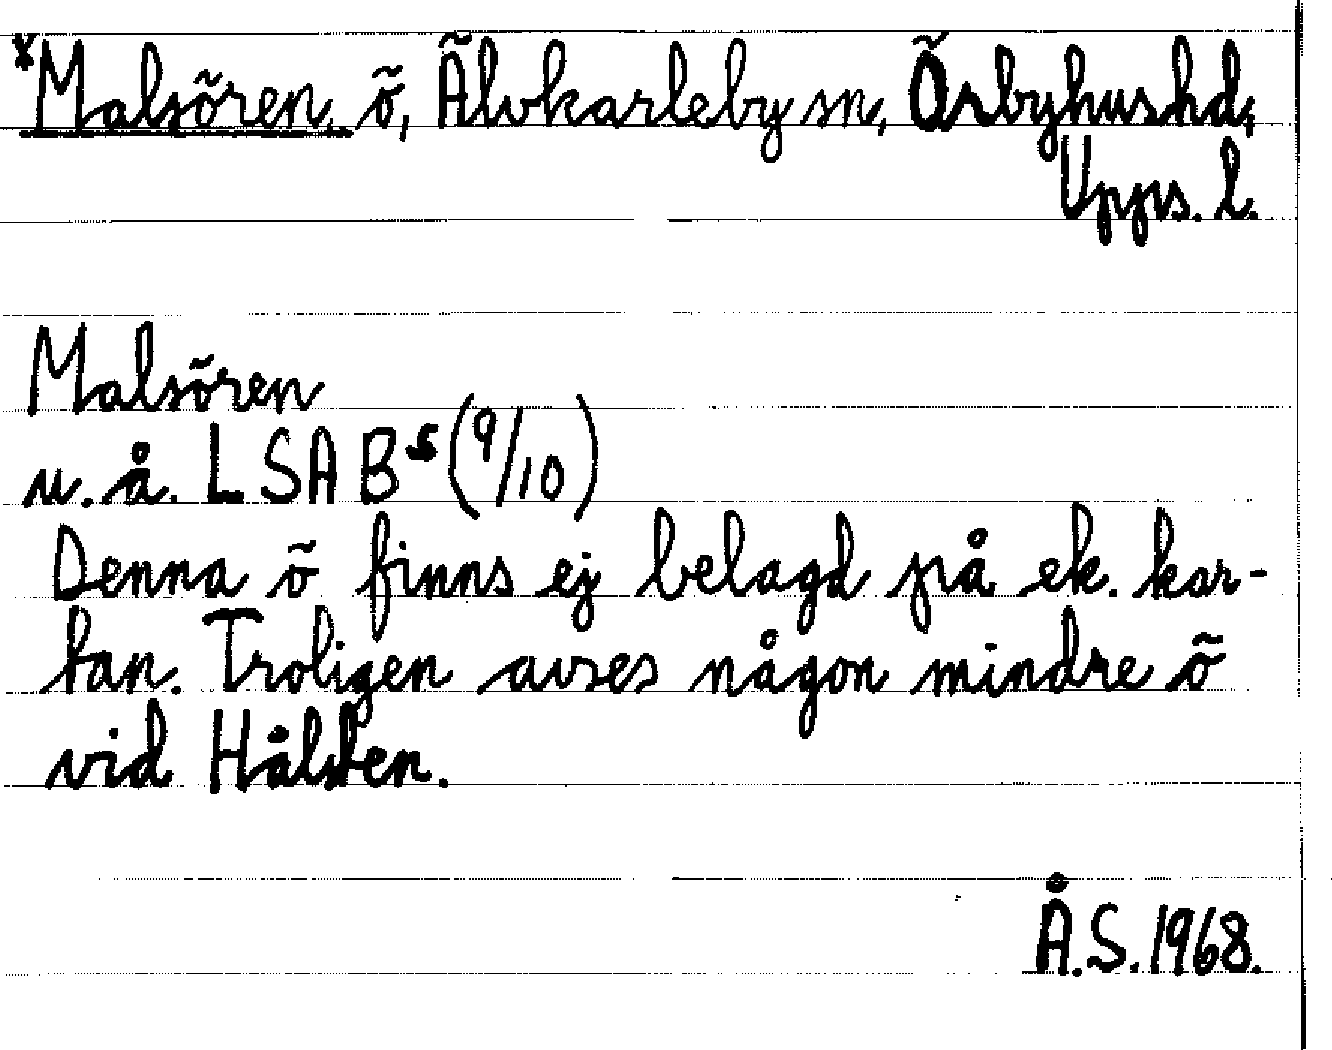 *Malsören, ö, Älvkarleby sn, Örbyhus hd,
Upps. l.
Malsören
u. å. L S A B⁵ (9/10)
Denna ö finns ej belagd på ek. kar-
tan. Troligen avses någon mindre ö
vid Hålsten.
Å.S. 1968.